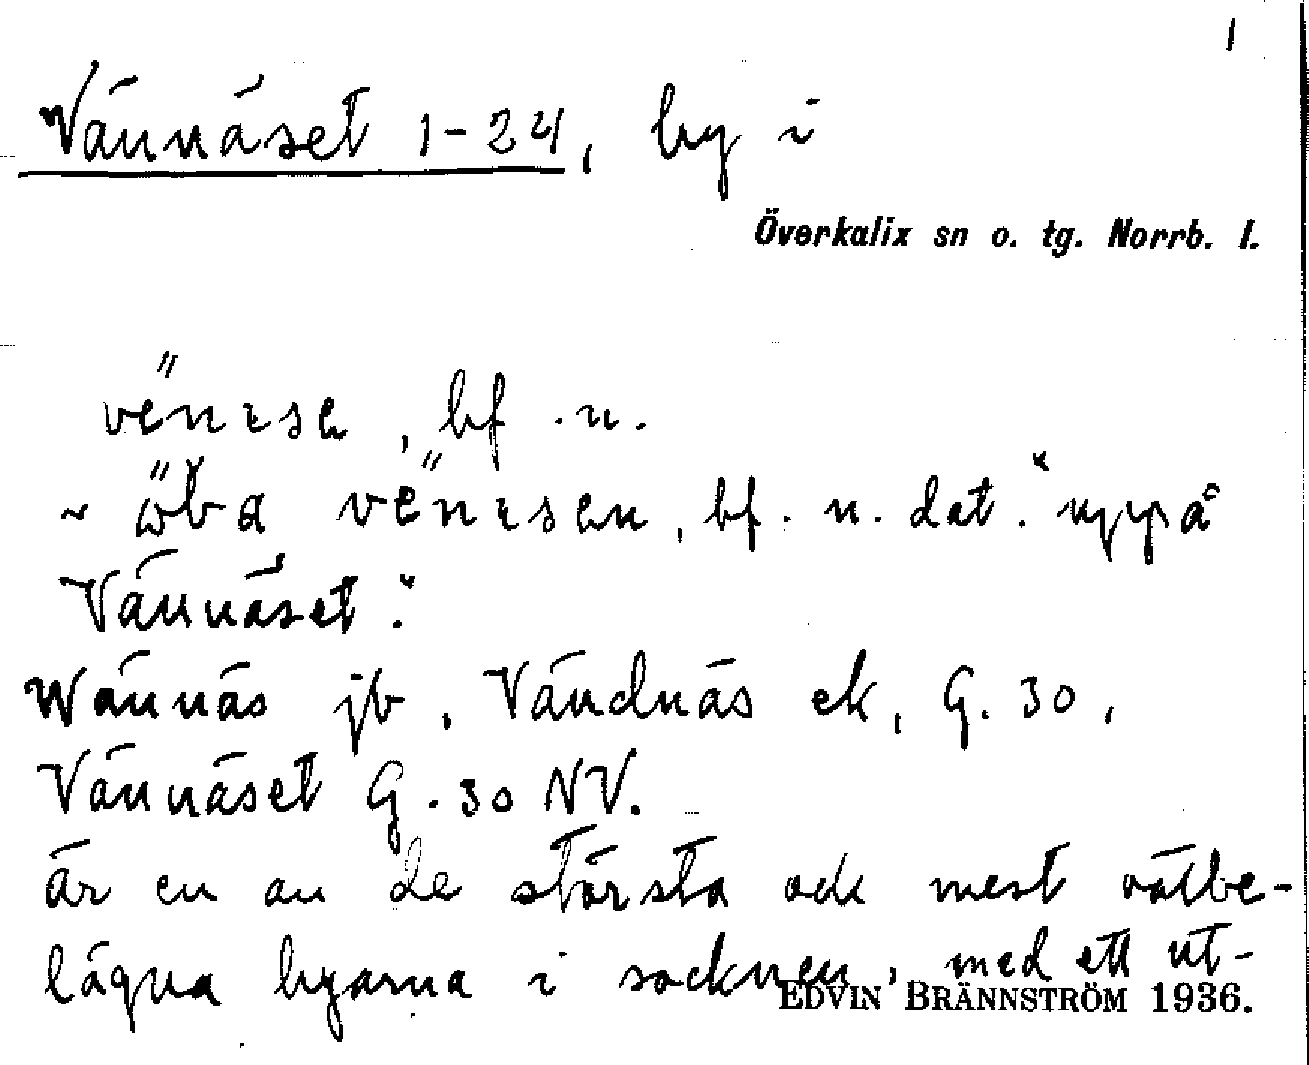 1
Vännäset 1-24, by i
Överkalix sn o. tg. Norrb. l.
bf. n.
~ bf. n. dat. "uppå
Vännäset".
Wännäs jb, Vändnäs ek, G. 30,
Vännäset G. 30 NV.
är en av de största och mest välbe-
lägna byarna i socknen, med ett ut-
EDVIN BRÄNNSTRÖM 1936.